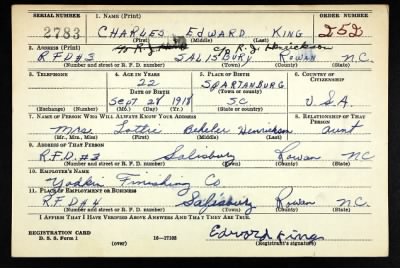 SERIAL NUMBER 1. NAME (Print) ORDER NUMBER
2783 CHARLES EDWARD KING 252
(First) (Middle) (Last)
2. ADDRESS (Print) c/o R.J.
R.F.D.#3 SALISBURY ROWAN N.C.
(Number and street or R. F. D. number) (Town) (County) (State)
3. TELEPHONE 4. AGE IN YEARS 5. PLACE OF BIRTH 6. COUNTRY OF CITIZENSHIP
22 SPARTANBURG
DATE OF BIRTH (Town or county)
Sept 28 1918 S.C. U.S.A.
(Exchange) (Number) (Mo.) (Day) (Yr.) (State or country)
7. NAME OF PERSON WHO WILL ALWAYS KNOW YOUR ADDRESS 8. RELATIONSHIP OF THAT PERSON
Mrs. Lottie aunt
(Mr., Mrs., Miss) (First) (Middle) (Last)
9. ADDRESS OF THAT PERSON
R.F.D.#3 Salisbury Rowan N.C.
(Number and street or R. F. D. number) (Town) (County) (State)
10. EMPLOYER'S NAME
Yadkin Finishing Co
11. PLACE OF EMPLOYMENT OR BUSINESS
R.F.D #4 Salisbury Rowan N.C.
(Number and street or R. F. D. number) (Town) (County) (State)
I AFFIRM THAT I HAVE VERIFIED ABOVE ANSWERS AND THAT THEY ARE TRUE.
REGISTRATION CARD Edward King
D. S. S. Form 1 (over) 16—17105 (Registrant's signature)